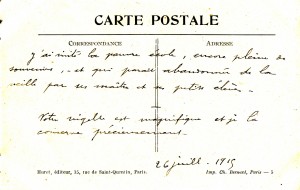 CARTE POSTALE
CORRESPONDANCE
ADRESSE
J'ai visité la pauvre école, encore pleine de
souvenirs, et qui parait abandonnée de la
ville par ses maîtres et ses petits élèves.
Votre est magnifique et je la
conserve précieusement.
26 juill. 1915
Huret, éditeur, 35, rue de Saint-Quentin, Paris.
Imp. Ch. Bernard, Paris — 5